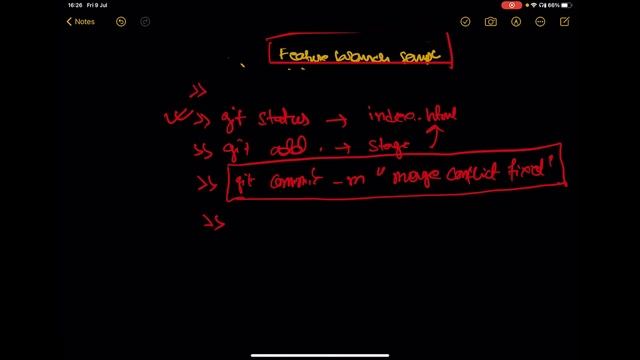 16:26 Fri 9 Jul 66%
Notes
Feature branch
>>
>> git status → index.html
>> git add . → stage
>> git commit -m "merge conflict fixed"
>>